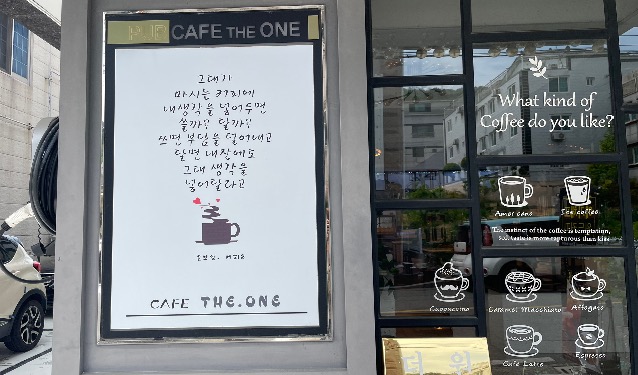 PUB CAFE THE ONE
그대가
마시는 커피에
내생각을 넣어두면
쓸까? 달까?
쓰면 부담을 덜어내고
달면 내잔에도
그대 생각을
넣어달라고
CAFE THE.ONE
What kind of
Coffee do you like?
Americano
Ice coffee
The instinct of the coffee is temptation,
taste is more rapturous than kiss
Cappuccino
Caramel Macchiato
Affogato
Cafe Latte
Espresso
더 원